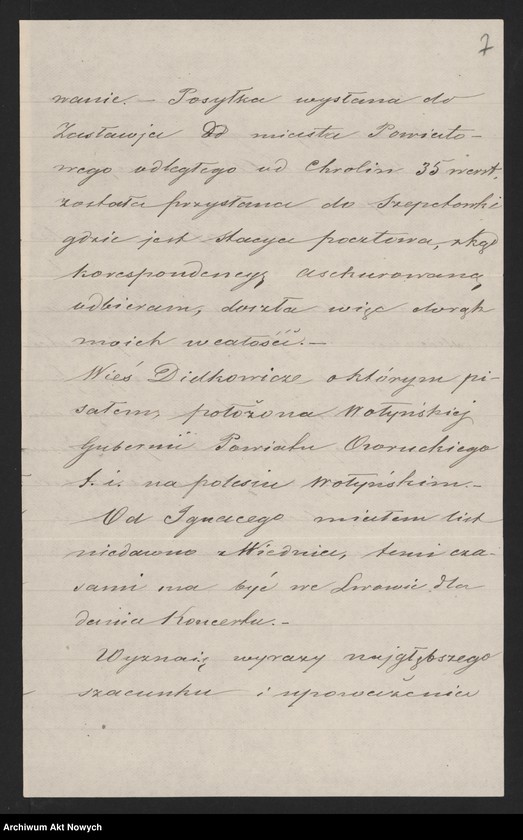 7
wanie. – Posyłka wysłana do
Zasławja do miasta Powiato-
wego odległego od Chrolin 35 werst,
została przysłana do Szepetowki
gdzie jest Stacya pocztowa, zkąd
korespondencyę aschurowaną
odbieram, doszła więc do rąk
moich w całości. –
Wieś Didkowicze, o którym pi-
sałem, położona Wołyńskiej
Gubernii Powiatu Owruckiego
t. i. na polesiu Wołyńskim. –
Od Ignacego miałem list
niedawno z Wiednia, temi cza-
sami ma być we Lwowie dla
dania Koncertu. –
Wyznaię wyrazy najgłębszego
szacunku i upoważenia
Archiwum Akt Nowych